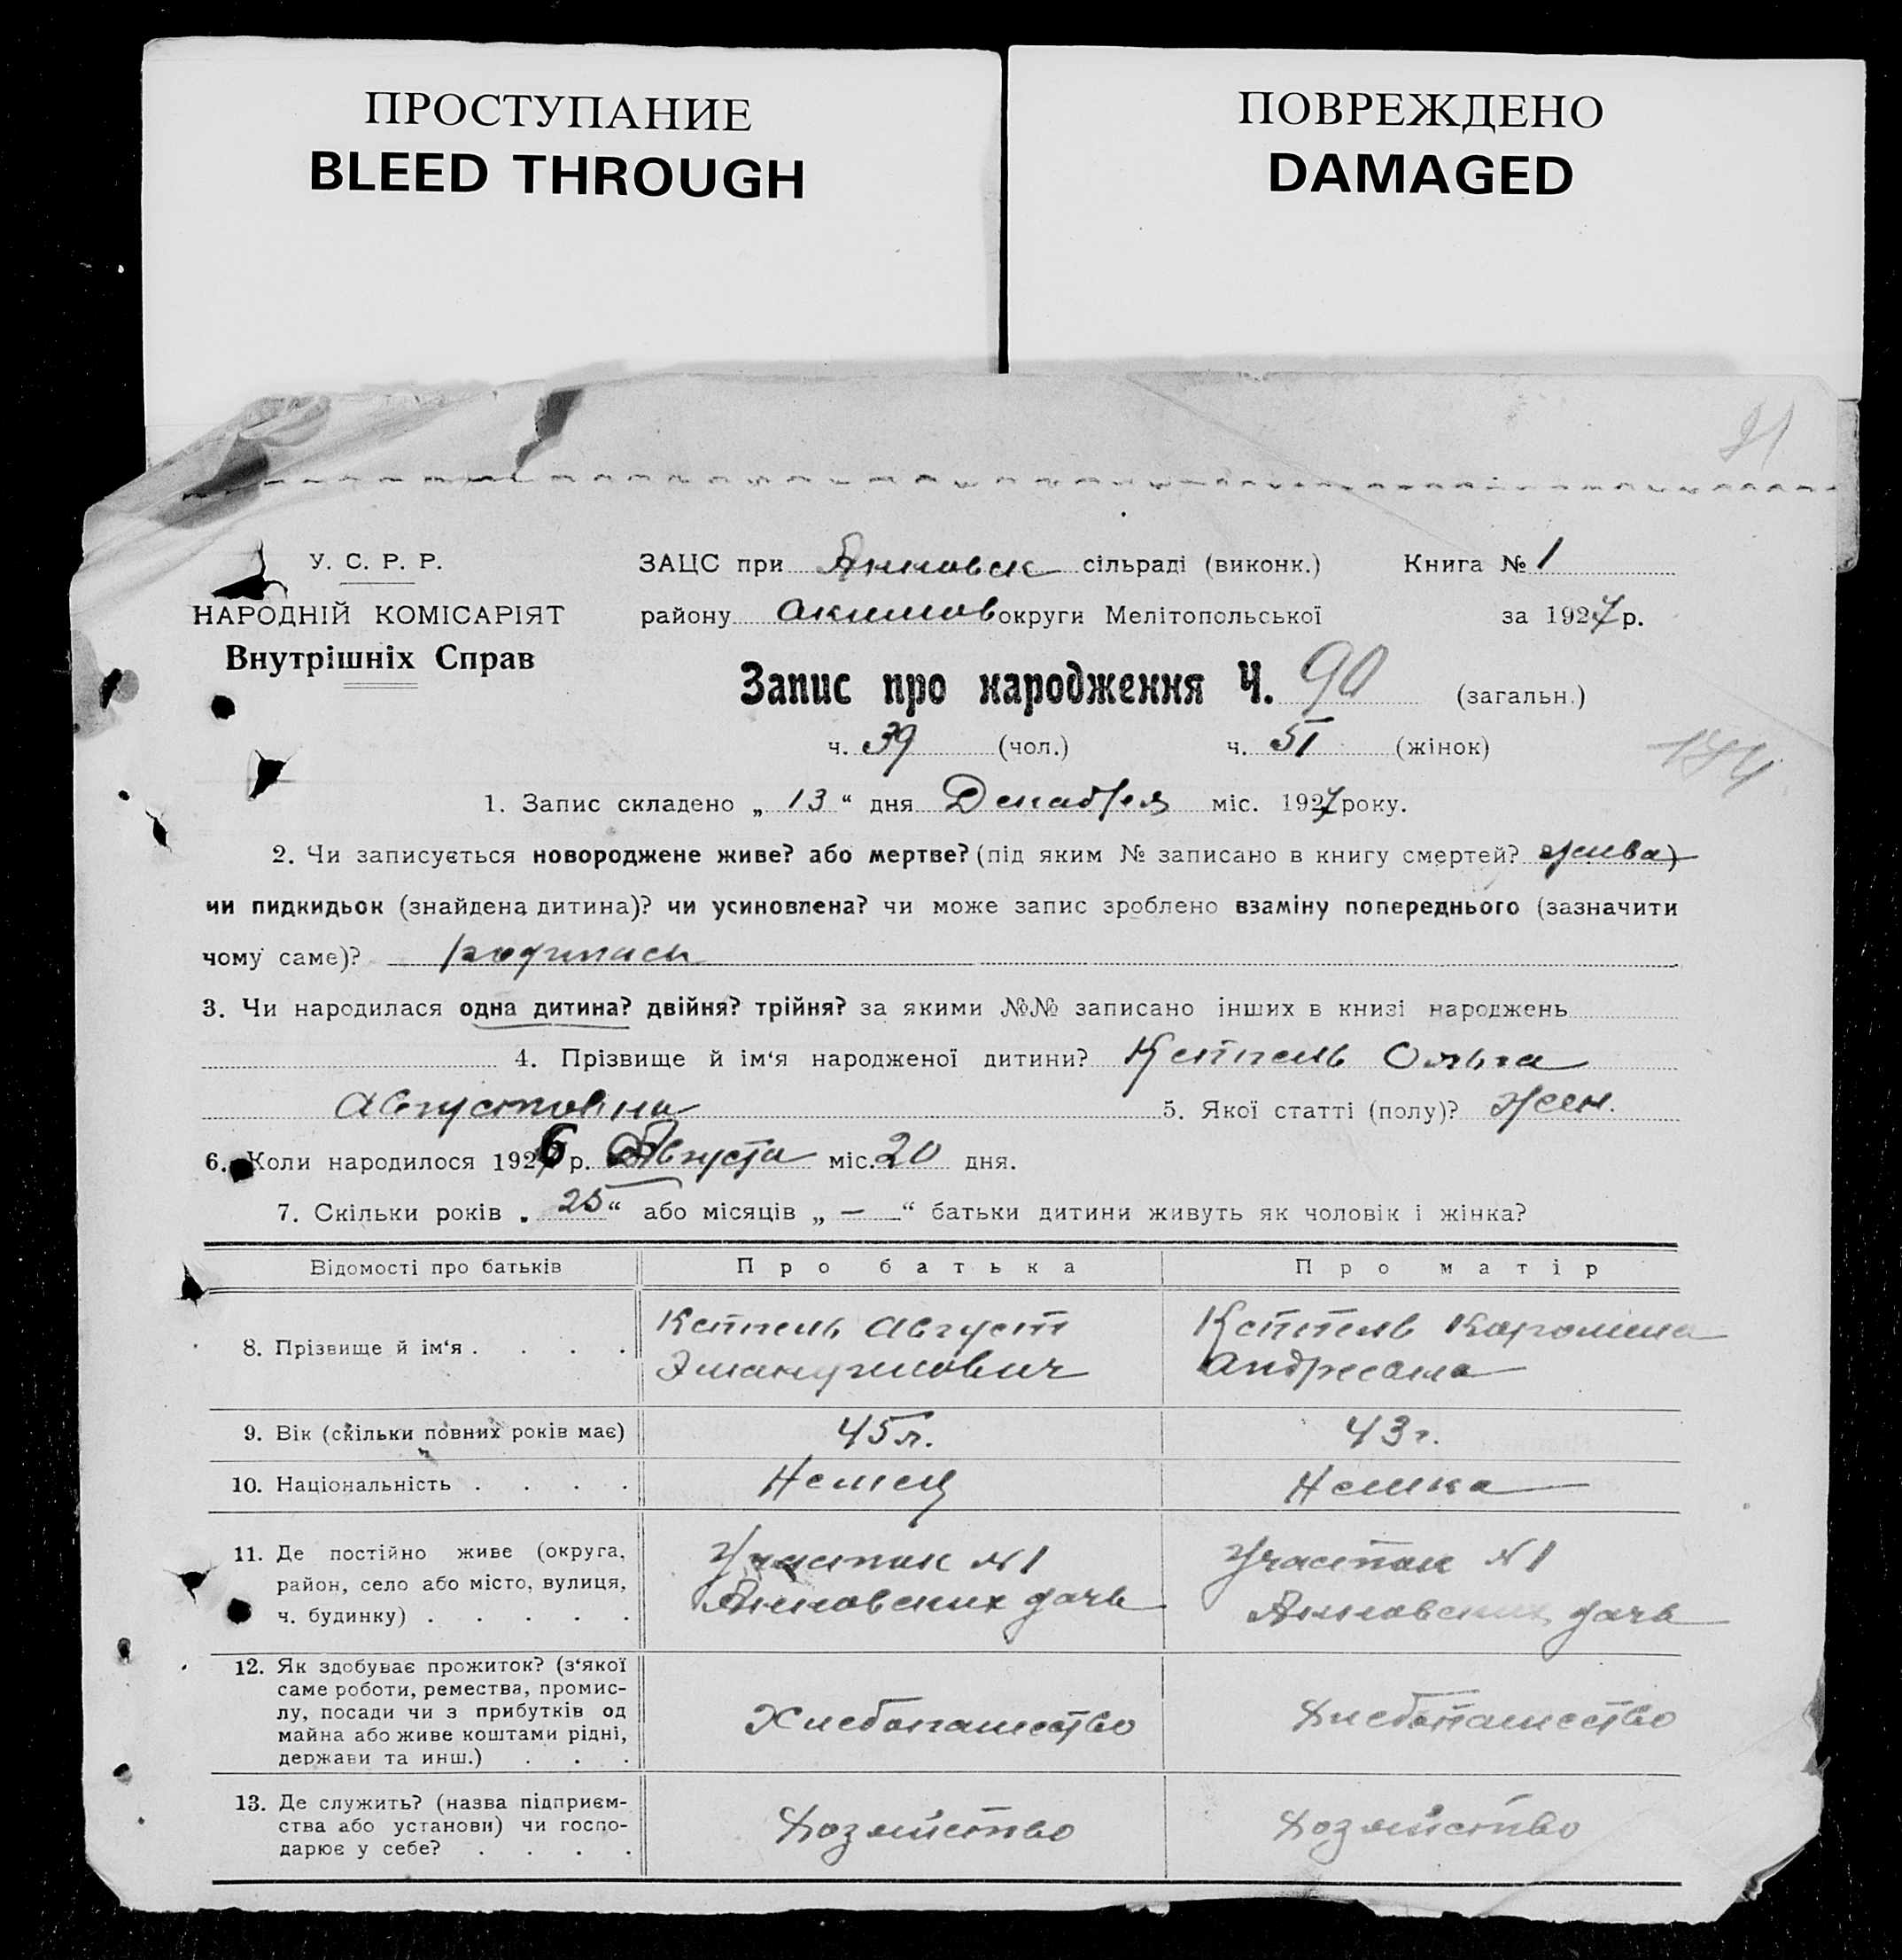 ПРОСТУПАНИЕ
BLEED THROUGH
ПОВРЕЖДЕНО
DAMAGED
У. С. Р. Р.
НАРОДНІЙ КОМІСАРІЯТ
Внутрішніх Справ
ЗАЦС при Анновск сільраді (виконк.) Книга № 1
району Акимов округи Мелітопольської за 1927 р.
Запис про народження Ч. 90 (загальн.)
ч. 39 (чол.) ч. 51 (жінок)
1. Запис складено „ 13 “ дня Декабря міс. 1927 року.
2. Чи записується новороджене живе? або мертве? (під яким № записано в книгу смертей? жива)
чи пидкидьок (знайдена дитина)? чи усиновлена? чи може запис зроблено взаміну попереднього (зазначити
чому саме)? родилась
3. Чи народилася одна дитина? двійня? трійня? за якими №№ записано інших в книзі народжень
4. Прізвище й ім‘я народженої дитини? Кеттель Ольга
Августовна 5. Якої статті (полу)? жен.
6. Коли народилося 1926 р. Августа міс. 20 дня.
7. Скільки років „ 25 “ або місяців „ — “ батьки дитини живуть як чоловік і жінка?
Відомості про батьків Про батька Про матір
8. Прізвище й ім‘я . . . . Кеттель Август Кеттель Каролина
Эмануилович
9. Вік (скільки повних років має) 45 л. 43 г.
10. Національність . . . . Немец Немка
11. Де постійно живе (округа, Участок №1 Участок №1
район, село або місто, вулиця, Анновских дачь Анновских дачь
ч. будинку) . . . . .
12. Як здобуває прожиток? (з‘якої
саме роботи, ремества, промис-
лу, посади чи з прибутків од Хлебопашество Хлебопашество
майна або живе коштами рідні,
держави та инш.) . . .
13. Де служить? (назва підприєм-
ства або установи) чи госпо- Хозяйство Хозяйство
дарює у себе? . . . .